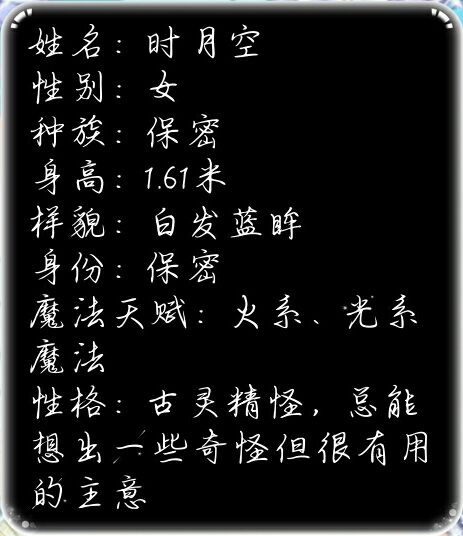 姓名：时月空
性别：女
种族：保密
身高：1.61米
样貌：白发蓝眸
身份：保密
魔法天赋：火系、光系
魔法
性格：古灵精怪，总能
想出一些奇怪但很有用
的主意